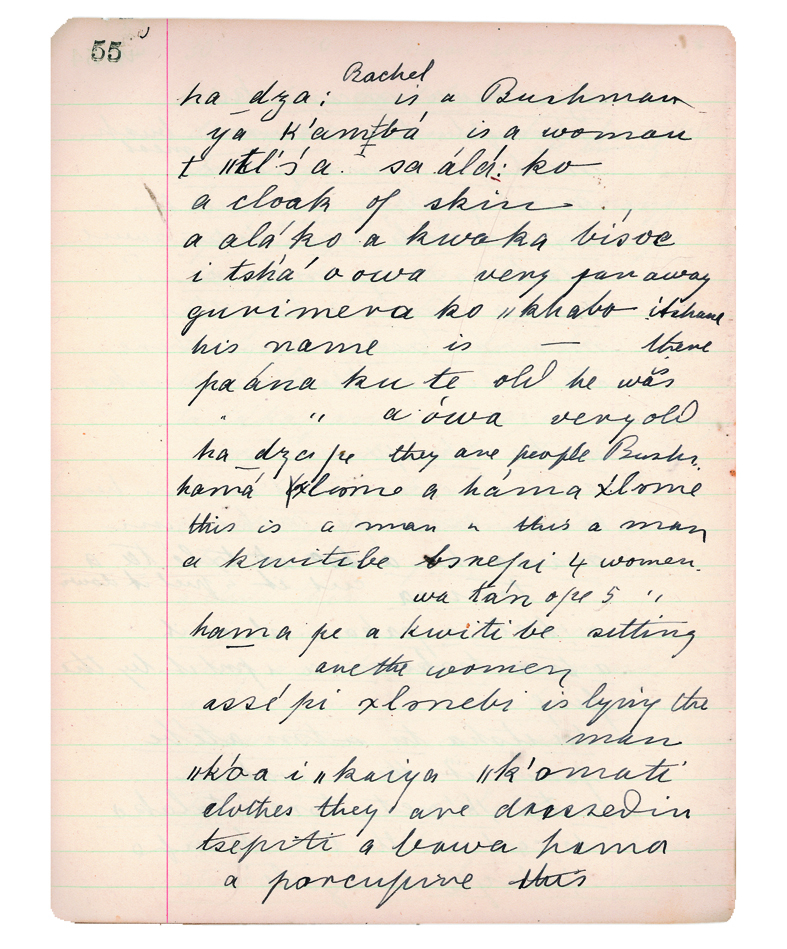 55
Rachel
ha dza: is a Bushman
ya k'ambá is a woman
sa álá: ko
a cloak of skin
a alá ko a kwaka bísoe
i tshá' o owa very far away
gurimera ko "khabo
his name is — there
paána ku te old he was
" " a ówa very old
ha dza pe they are people Bushm.
hamá xlome a háma xlome
this is a man " this a man
a kwitibe bsrepi 4 women.
wa tán ope 5 "
hama pe a kwiti be sitting
are the women
assépi xlonebi is lying the
man
"k'óa i "kaiya "k'omati
clothes they are dressed in
tsepiti a bawa hama
a porcupine this